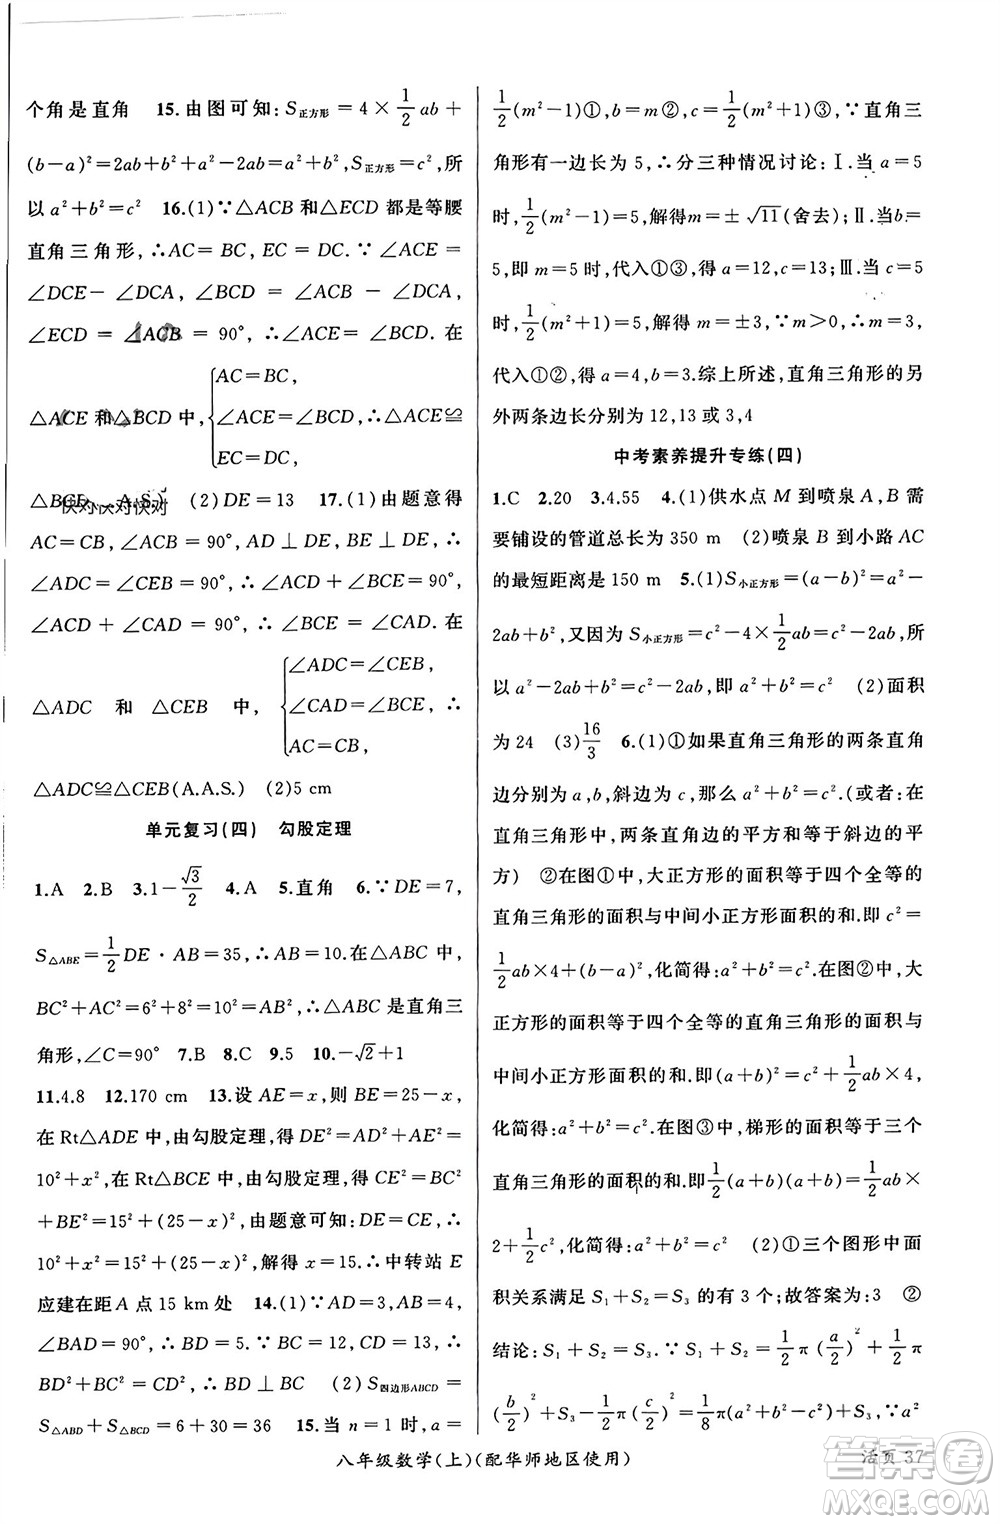 个角是直角 15.由图可知:S正方形=4×1/2ab+
(b-a)²=2ab+b²+a²-2ab=a²+b²,S正方形=c²,所
以a²+b²=c² 16.(1)∵△ACB和△ECD都是等腰
直角三角形,∴AC=BC,EC=DC.∵∠ACE=
∠DCE-∠DCA,∠BCD=∠ACB-∠DCA,
∠ECD=∠ACB=90°,∴∠ACE=∠BCD.在
△ACE和△BCD中,{AC=BC,
∠ACE=∠BCD,∴△ACE≌
EC=DC.
△BCD A.S.) (2)DE=13 17.(1)由题意得
AC=CB,∠ACB=90°,AD⊥DE,BE⊥DE,∴
∠ADC=∠CEB=90°,∴∠ACD+∠BCE=90°,
∠ACD+∠CAD=90°,∴∠BCE=∠CAD.在
△ADC和△CEB中,{∠ADC=∠CEB,
∠CAD=∠BCE,∴
AC=CB,
△ADC≌△CEB(A.A.S.) (2)5 cm
单元复习(四) 勾股定理
1.A 2.B 3.1-√3/2 4.A 5.直角 6.∵DE=7,
S△ABE=1/2DE·AB=35,∴AB=10.在△ABC中,
BC²+AC²=6²+8²=10²=AB²,∴△ABC是直角三
角形,∠C=90° 7.B 8.C 9.5 10.-√2+1
11.4.8 12.170 cm 13.设AE=x,则BE=25-x,
在Rt△ADE中,由勾股定理,得DE²=AD²+AE²=
10²+x²,在Rt△BCE中,由勾股定理,得CE²=BC²
+BE²=15²+(25-x)²,由题意可知:DE=CE,∴
10²+x²=15²+(25-x)²,解得x=15.∴中转站E
应建在距A点15 km处 14.(1)∵AD=3,AB=4,
∠BAD=90°,∴BD=5.∵BC=12,CD=13,∴
BD²+BC²=CD²,∴BD⊥BC (2)S四边形ABCD=
S△ABD+S△BCD=6+30=36 15.当n=1时,a=
1/2(m²-1)①,b=m②,c=1/2(m²+1)③,∵直角三
角形有一边长为5,∴分三种情况讨论:Ⅰ.当a=5
时,1/2(m²-1)=5,解得m=±√11(舍去);Ⅱ.当b=
5,即m=5时,代入①③,得a=12,c=13;Ⅲ.当c=5
时,1/2(m²+1)=5,解得m=±3,∵m>0,∴m=3,
代入①②,得a=4,b=3.综上所述,直角三角形的另
外两条边长分别为12,13或3,4
中考素养提升专练(四)
1.C 2.20 3.4.55 4.(1)供水点M到喷泉A,B
需要铺设的管道总长为350 m (2)喷泉B到小路AC
的最短距离是150 m 5.(1)S小正方形=(a-b)²=a²-
2ab+b²,又因为S小正方形=c²-4×1/2ab=c²-2ab,所
以a²-2ab+b²=c²-2ab,即a²+b²=c² (2)面积
为24 (3)16/3 6.(1)①如果直角三角形的两条直角
边分别为a,b,斜边为c,那么a²+b²=c².(或者:在
直角三角形中,两条直角边的平方和等于斜边的平
方) ②在图①中,大正方形的面积等于四个全等的
直角三角形的面积与中间小正方形面积的和.即c²=
1/2ab×4+(b-a)²,化简得:a²+b²=c².在图②中,大
正方形的面积等于四个全等的直角三角形的面积与
中间小正方形面积的和.即(a+b)²=c²+1/2ab×4,
化简得:a²+b²=c².在图③中,梯形的面积等于三个
直角三角形的面积的和.即1/2(a+b)(a+b)=1/2ab×
2+1/2c²,化简得:a²+b²=c² (2)①三个图形中面
积关系满足S₁+S₂=S₃的有3个;故答案为:3 ②
结论:S₁+S₂=S₃.∵S₁+S₂=1/2π(a/2)²+1/2π
(b/2)²+S₃-1/2π(c/2)²=1/8π(a²+b²-c²)+S₃,∵a²
八年级数学(上)(配华师地区使用) 活页 37
快对快对快对
答案圈
MXQE.COM